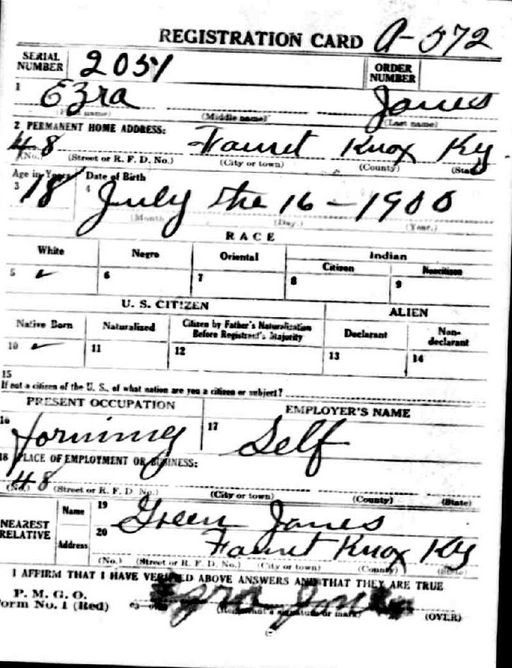 REGISTRATION CARD A-572
SERIAL NUMBER 2051 ORDER NUMBER
1 Ezra Jones
(First name) (Middle name) (Last name)
2 PERMANENT HOME ADDRESS:
48 Knox Ky.
(No.) (Street or R. F. D. No.) (City or town) (County) (State)
Age in Years Date of Birth
3 18 4 July the 16 - 1900
(Month) (Day) (Year)
RACE
White Negro Oriental Indian
Citizen Noncitizen
5 ✓ 6 7 8 9
U. S. CITIZEN ALIEN
Native Born Naturalized Citizen by Father's Naturalization Before Registrant's Majority Declarant Non-declarant
10 ✓ 11 12 13 14
15
If not a citizen of the U. S., of what nation are you a citizen or subject?
PRESENT OCCUPATION EMPLOYER'S NAME
16 17 Self
18 PLACE OF EMPLOYMENT OR BUSINESS:
48
(No.) (Street or R. F. D. No.) (City or town) (County) (State)
NEAREST RELATIVE
Name 19 Green Jones
Address 20 Knox Ky
(No.) (Street or R. F. D. No.) (City or town) (County) (State)
I AFFIRM THAT I HAVE VERIFIED ABOVE ANSWERS AND THAT THEY ARE TRUE
P. M. G. O.
Form No. 1 (Red) Ezra Jones
(Registrant's signature or mark) (OVER)